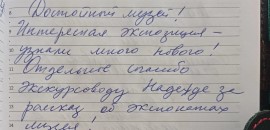 Достойный музей!
Интересная экспозиция –
узнали много нового!
Отдельное спасибо
экскурсоводу Надежде за
рассказ об экспонатах
музея!